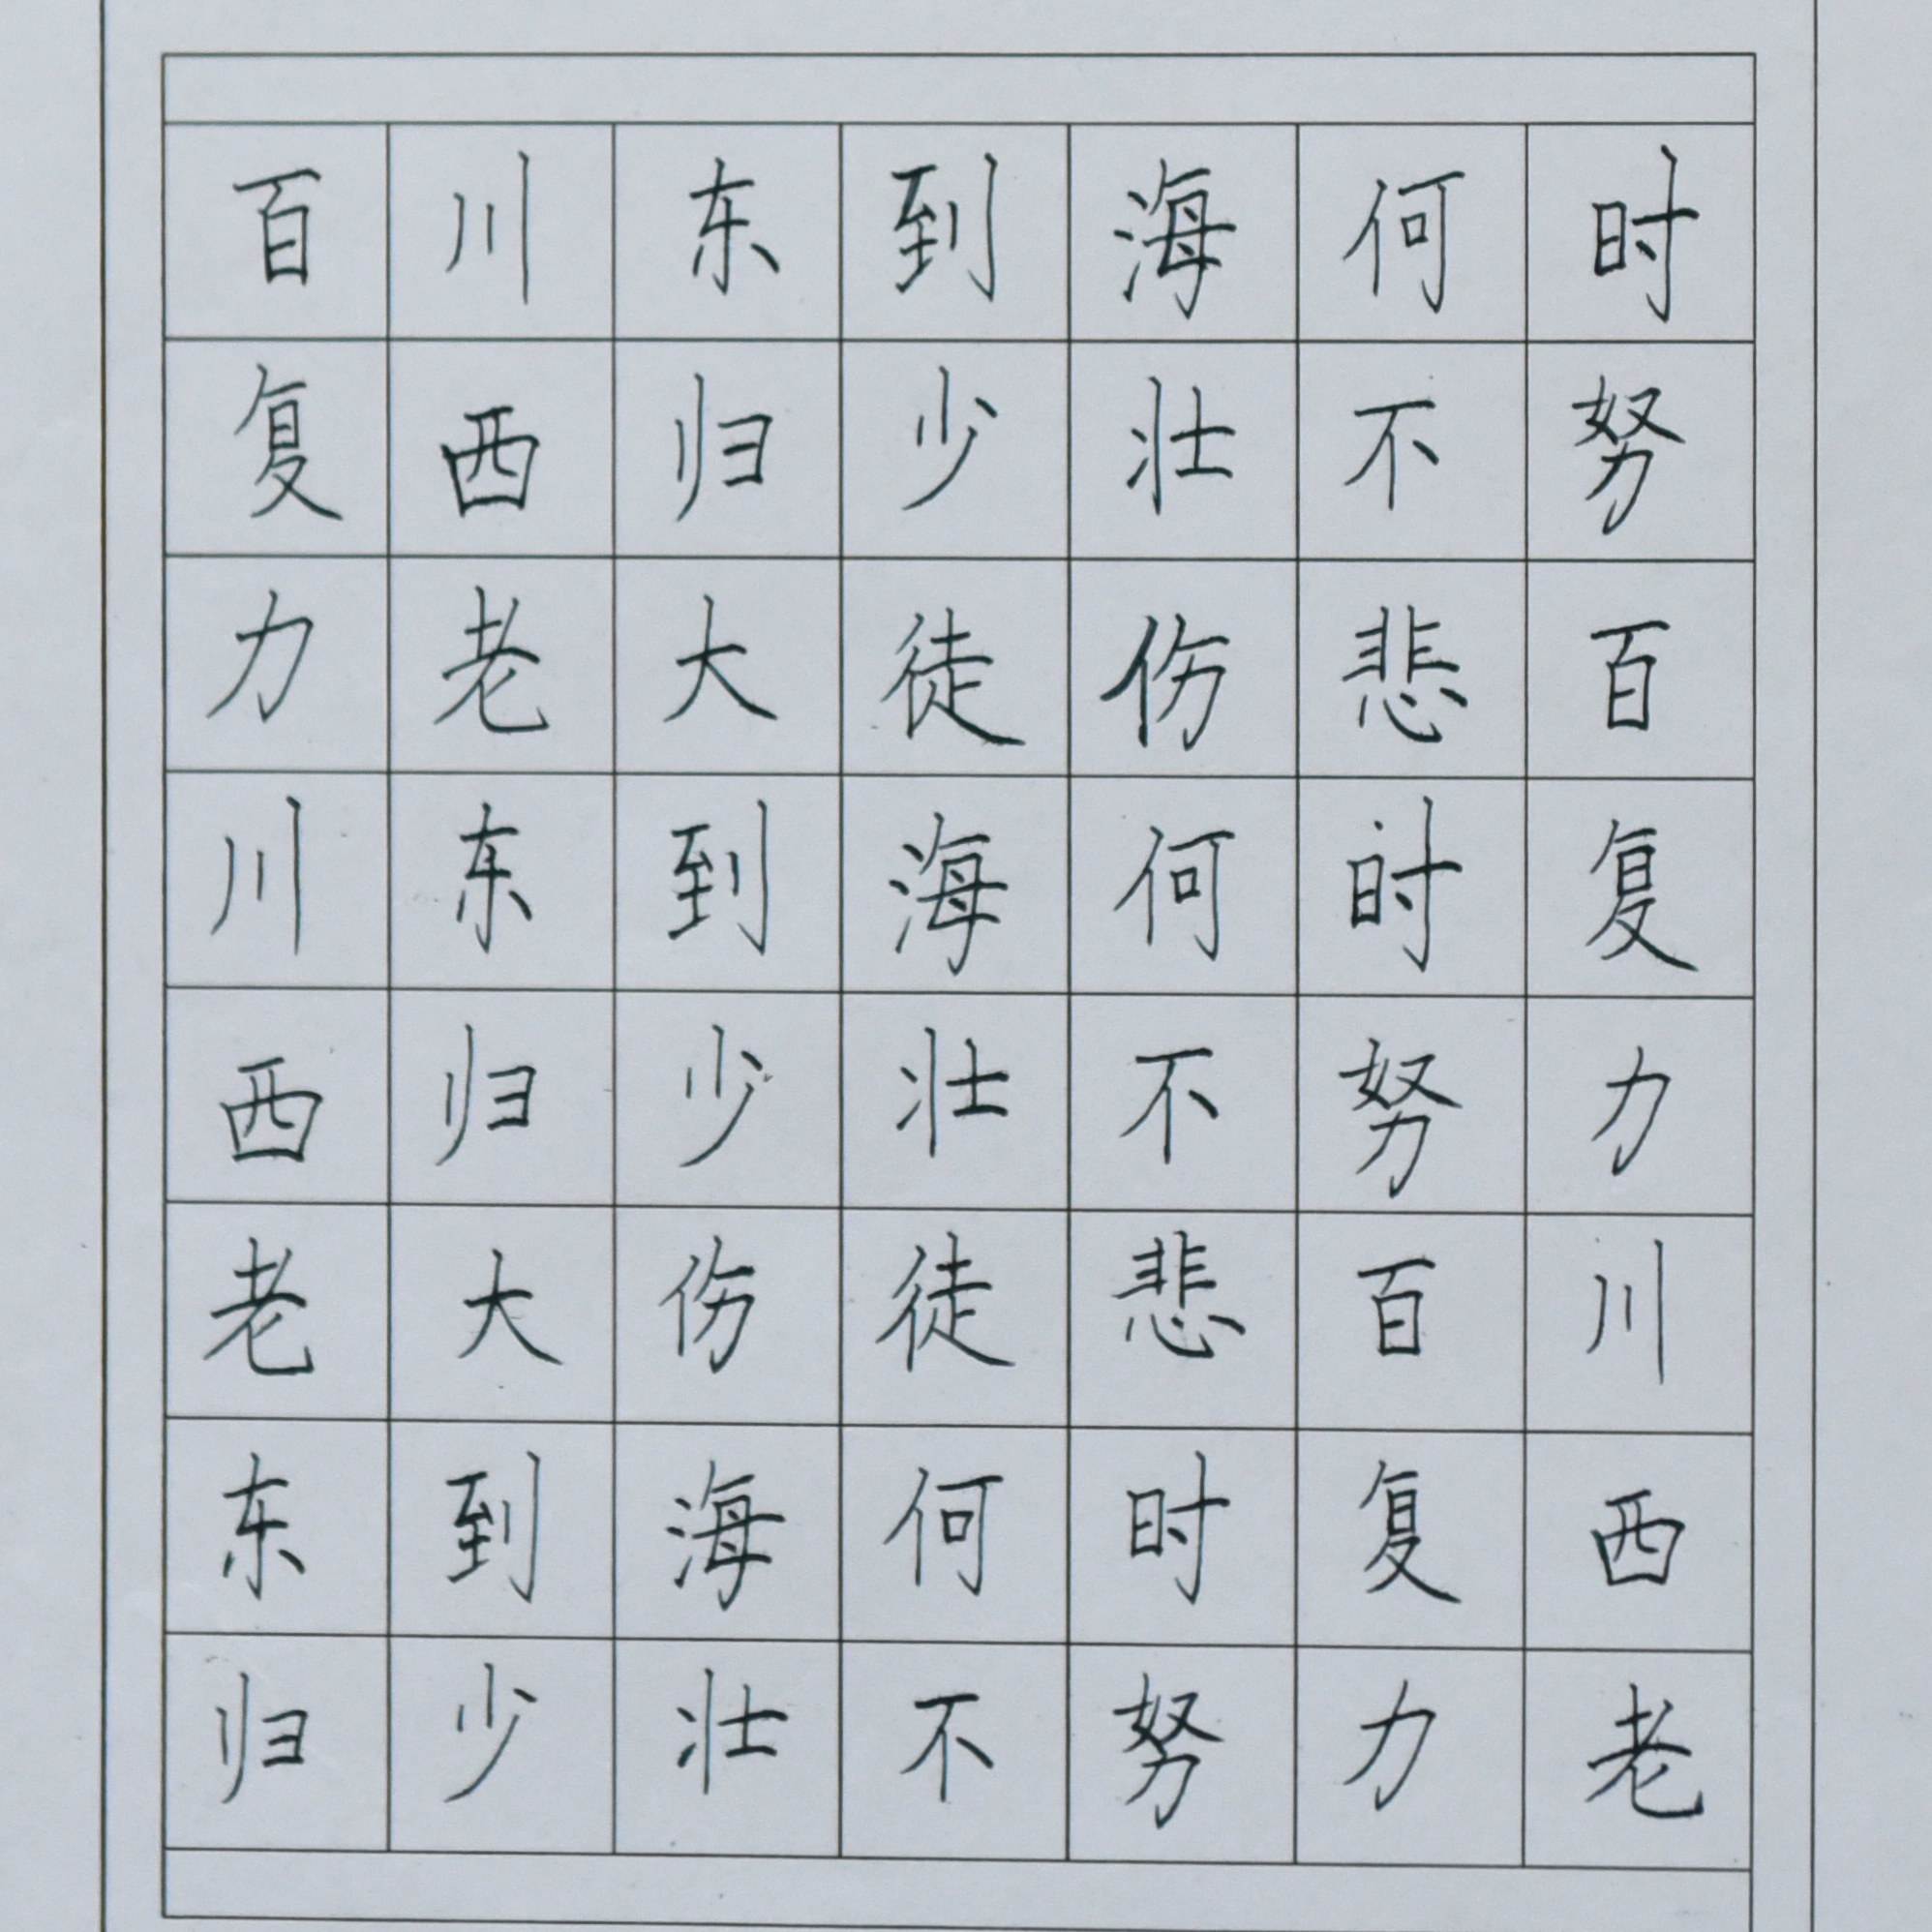 百川东到海何时
复西归少壮不努
力老大徒伤悲百
川东到海何时复
西归少壮不努力
老大伤徒悲百川
东到海何时复西
归少壮不努力老